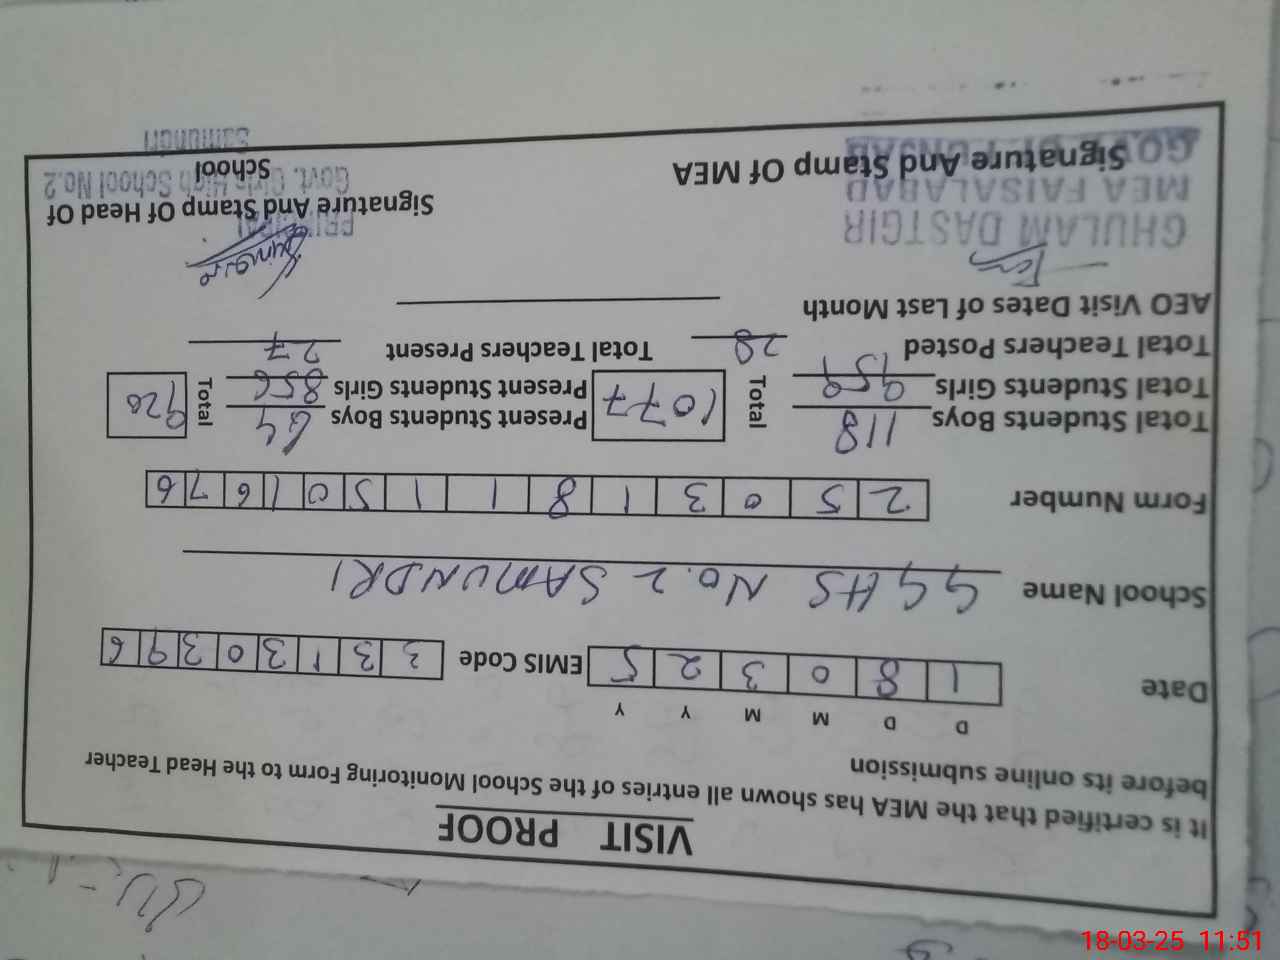 VISIT PROOF
It is certified that the MEA has shown all entries of the School Monitoring Form to the Head Teacher
before its online submission
D D M M Y Y
Date 1 8 0 3 2 5 EMIS Code 3 3 1 3 0 3 9 6
School Name GGHS No. 2 SAMUNDRI
Form Number 2 5 0 3 1 8 1 1 5 0 1 6 7 6
Total Students Boys 118 Total 1077 Present Students Boys 64 Total 920
Total Students Girls 959 Present Students Girls 856
Total Teachers Posted 28 Total Teachers Present 27
AEO Visit Dates of Last Month
GHULAM DASTGIR
MEA FAISALABAD
GOVT. OF PUNJAB
Signature And Stamp Of MEA
PRINCIPAL
Govt. Girls High School No.2
Samundri
Signature And Stamp Of Head Of
School
18-03-25 11:51